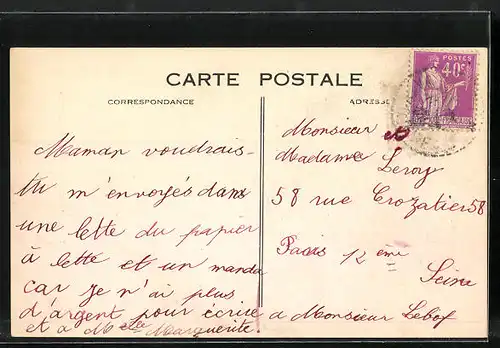 CARTE POSTALE
CORRESPONDANCE
ADRESSE
POSTES
40c
Maman voudrais-
tu m'envoyés dans
une lette du papier
à lette et un manda
car je n'ai plus
d'argent pour écrire
et a Melle Marguerite.
Monsieur et
Madame Leroy
58 rue Crozatier 58
Paris 12 eme
Seine
a Monsieur